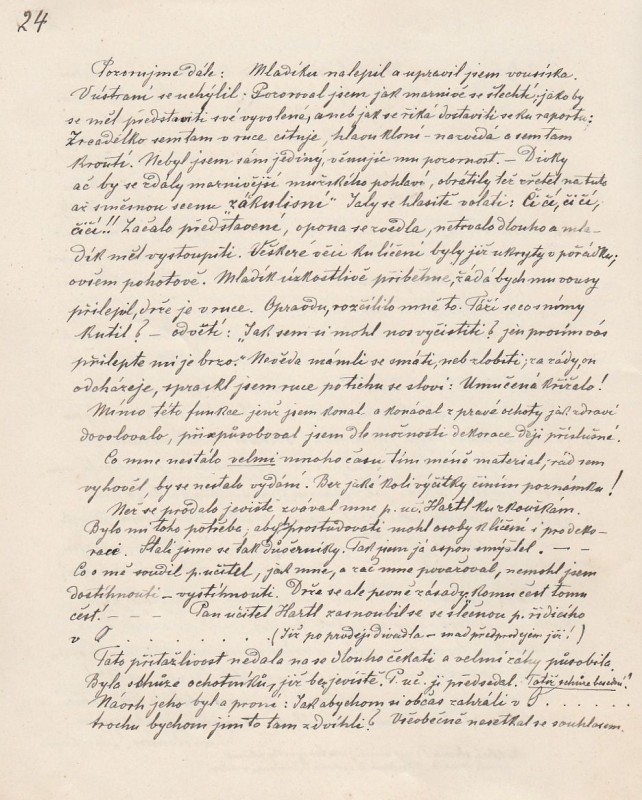 24
Pozorujme dále: Mladíku nalepil a upravil jsem vousiska.
V ústraní se uchýlil. Pozoroval jsem jak marnivě se šlechtí; jako by
se měl představiti své vyvolené, aneb jak se říká dostaviti se ku raportu;
Zrcadélko sem tam v ruce cituje, hlavou kloní - nazvedá a sem tam
kroutí. Nebyl jsem sám jediný, věnujíc mu pozornost. - Dívky
ač by se zdály marnivější mužského pohlaví, obrátily též zřetel na tuto
až směšnou scenu "zákulisní" Jaly se hlasitě volati: Čí čí, čí čí,
čičí!! Začalo představení, opona se zvedla, netrvalo dlouho a mla-
dík měl vystoupiti. Veškeré věci ku líčení byly již ukryty v pořádku;
ovšem pohotově. Mladík úzkostlivě přiběhne, žádá bych mu vousy
přilepil, drže je v ruce. Opravdu, rozčílilo mně to. Táži se co s nimy
kutil? - odvětí: "Jak sem si mohl nos vyčistiti? jen prosím vás
přilepte mi je brzo." Nevěda mám-li se smáti, neb zlobiti; za zády, on
odcházeje, spráskl jsem ruce potichu se slovi: Umučená křížalo!
Mimo této funkce jenž jsem konal a konával z pravé ochoty jak zdraví
dovolovalo, přizpůsoboval jsem dle možnosti dekorace ději příslušné.
Co mne nestálo velmi mnoho času tím méně material; rád sem
vyhověl, by se nestalo vydání. Bez jaké koli výčitky činím poznámku!
Než se prodalo jeviště zvával mne p. uč. Hartl ku zkouškám.
Bylo mi toho potřeba, abych prostudovati mohl osoby k líčení i pro deko-
race. Stali jsme se tak důvěrníky. Tak jsem já aspon smýšlel. - -
Co o mě soudil p. učitel, jak mne, a zač mne považoval, nemohl jsem
dostihnouti - vystihnouti. Drže se ale pevné zásady "komu čest tomu
čest". - - - Pan učitel Hartl zasnoubil se se slečnou p. řídícího
v . . . . . . . . . (Již po prodeji divadla - snad před prodejem již!)
Tato přitažlivost nedala na se dlouho čekati a velmi záhy působila.
Byla schůze ochotníků, již bez jeviště. P. uč. ji předsedal.
Návrh jeho byl a první: Jak abychom si občas zahráli v . . . . . . .
trochu bychom jim to tam zdvihli? Všeobecně nesetkal se souhlasem.